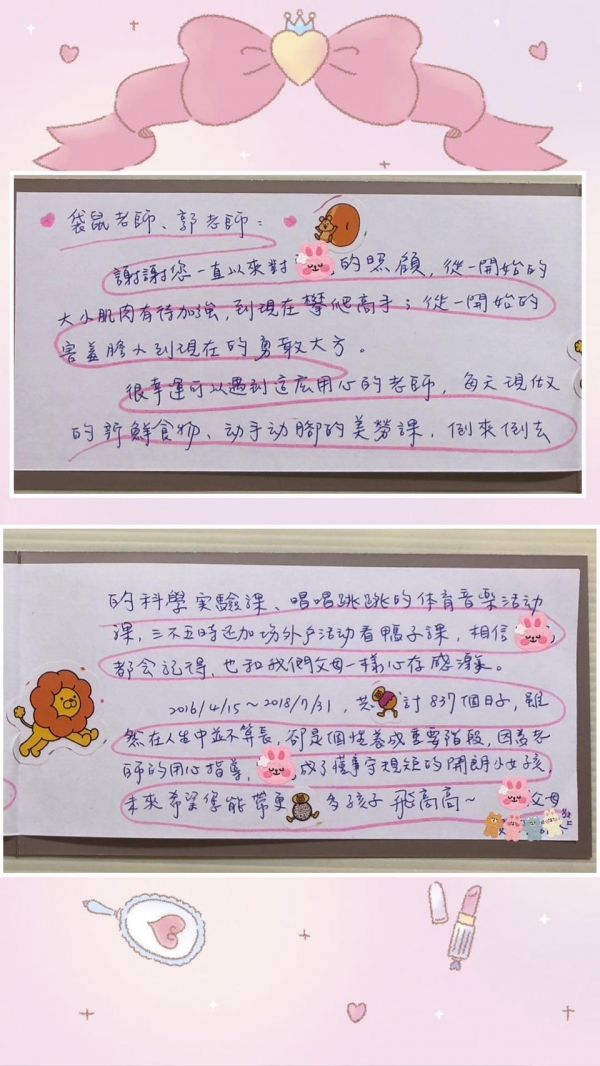 袋鼠老師、郭老師：
謝謝您一直以來對 的照顧，從一開始的
大小肌肉有待加強，到現在攀爬高手；從一開始的
害羞膽小到現在的勇敢大方。
很幸運可以遇到這底用心的老師，每天現做
的新鮮食物、动手动腳的美勞課，倒來倒去
的科學實驗課、唱唱跳跳的体育音樂活动
課，三不五時还加場外戶活动看鴨子課，相信
都会記得，也和我們父母一樣心存感激。
2016/4/15～2018/7/31，共 計 837個日子，雖
然在人生中並不算長，卻是個性養成重要階段，因為老
師的用心指導， 成了懂事守規矩的開朗小女孩，
未來希望您能帶更 多孩子飛高高～ 父母